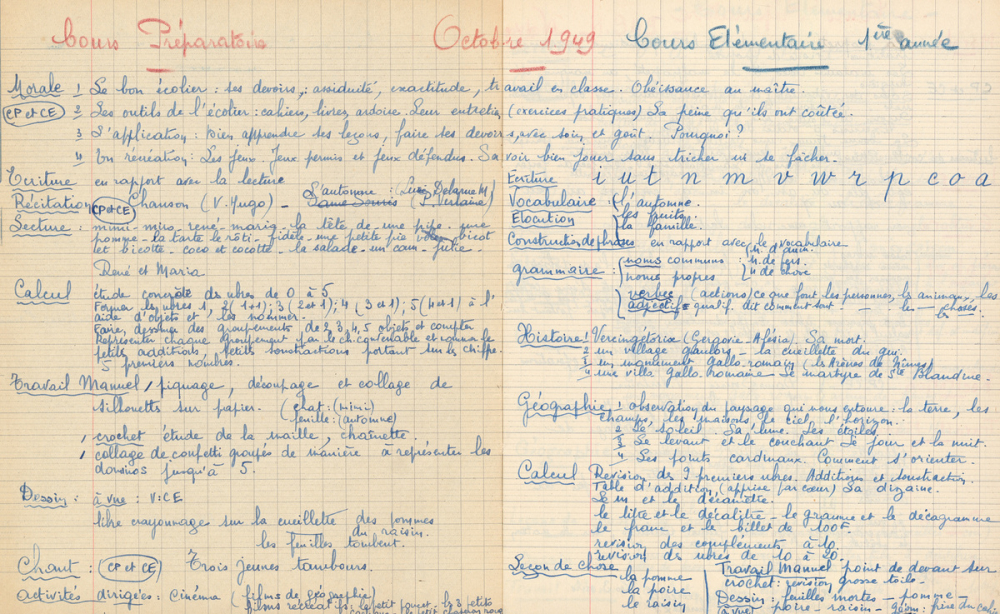 Cours Préparatoire Octobre 1949 Cours Elémentaire 1ère année
Morale 1 Le bon écolier : ses devoirs, assiduité, exactitude, travail en classe. Obéissance au maître.
CP et CE 2 Les outils de l'écolier : cahiers, livres, ardoise. Leur entretien (exercices pratiques) La peine qu'ils ont coûtée.
3 L'application : bien apprendre ses leçons, faire ses devoirs, avec soin et goût. Pourquoi ?
4 En récréation : Les jeux. Jeux permis et jeux défendus. Savoir bien jouer sans tricher ni se fâcher.
Ecriture en rapport avec la lecture
Récitation CP et CE Chanson (V. Hugo) - L'automne : (Delarue M)
(P. Verlaine)
Lecture : mimi - miro - rené - maria - la tête de une pipe - une
pomme - la tarte le rôti - fidèle une petite bicot
et bicotte - coco et cocotte - la salade - un - julie -
René et Maria
Calcul étude concrète des nbres de 0 à 5
Former les nbres 1, 2 (1+1) ; 3 (2+1) ; 4 (3+1) ; 5 (4+1) à l'
aide d'objets et les nommer.
Faire, dessiner des groupements de 2, 3, 4, 5 objets et compter
Représenter chaque groupement par le ch. convenable et
petits additions, petits soustractions portant sur les chiffre.
5 premiers nombres.
Travail Manuel / piquage, découpage et collage de
silhouettes sur papier. (chat : (mimi)
feuille : (automne)
, crochet étude de la maille, chaînette.
, collage de confetti groupés de manière à représenter les
dominos jusqu'à 5.
Dessin : à vue : V : CE
libre crayonnage sur la cueillette des pommes
du raisin.
les feuilles tombent.
Chant : CP et CE Trois jeunes tambours.
activités dirigées : Cinéma (films de géographie)
films récréatifs : le petit poucet, les 3 petits
Ecriture i u t n m v w r p c o a
Vocabulaire : l'automne.
Elocution les fruits
la famille.
Construction de phrases en rapport avec le vocabulaire
grammaire : noms communs : n. d'anim.
n. de pers.
noms propres n. de chose
verbes (actions) ce que font les personnes, les animaux, les
adjectifs qualif. dit comment sont - les - choses.
Histoire 1 Vercingétorix (Gergovie - Alésia). Sa mort.
2 un village gaulois - la cueillette du gui.
3 un monument gallo-romain (les Arènes de Nîmes)
4 une villa gallo-romaine. Le martyre de Ste Blandine.
Géographie 1 observation du paysage qui nous entoure : la terre, les
champs, les maisons, le ciel, l'horizon.
2 Le soleil. La lune. Les étoiles.
3 Le levant et le couchant Le jour et la nuit.
4 Les points cardinaux. Comment s'orienter.
Calcul Révision des 9 premiers nbres. Additions et soustraction.
Table d'addition, (apprise par cœur) La dizaine.
Le m et le décamètre.
le litre et le décalitre - le gramme et le décagramme
le franc et le billet de 100F
révision des compléments à 10.
révision des nbres de 10 à 20.
Leçon de chose la pomme
la poire
le raisin
Travail Manuel point de devant sur
crochet : révision grosse toile.
Dessin : feuilles mortes - pomme -
à vue poire - raisin -